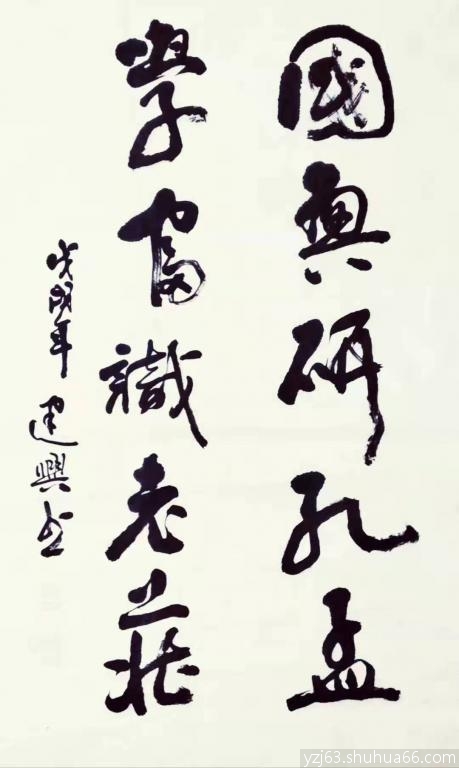 國研孔孟
學富識老莊
戊戌年 建興書
yzj63.shuhua66.com